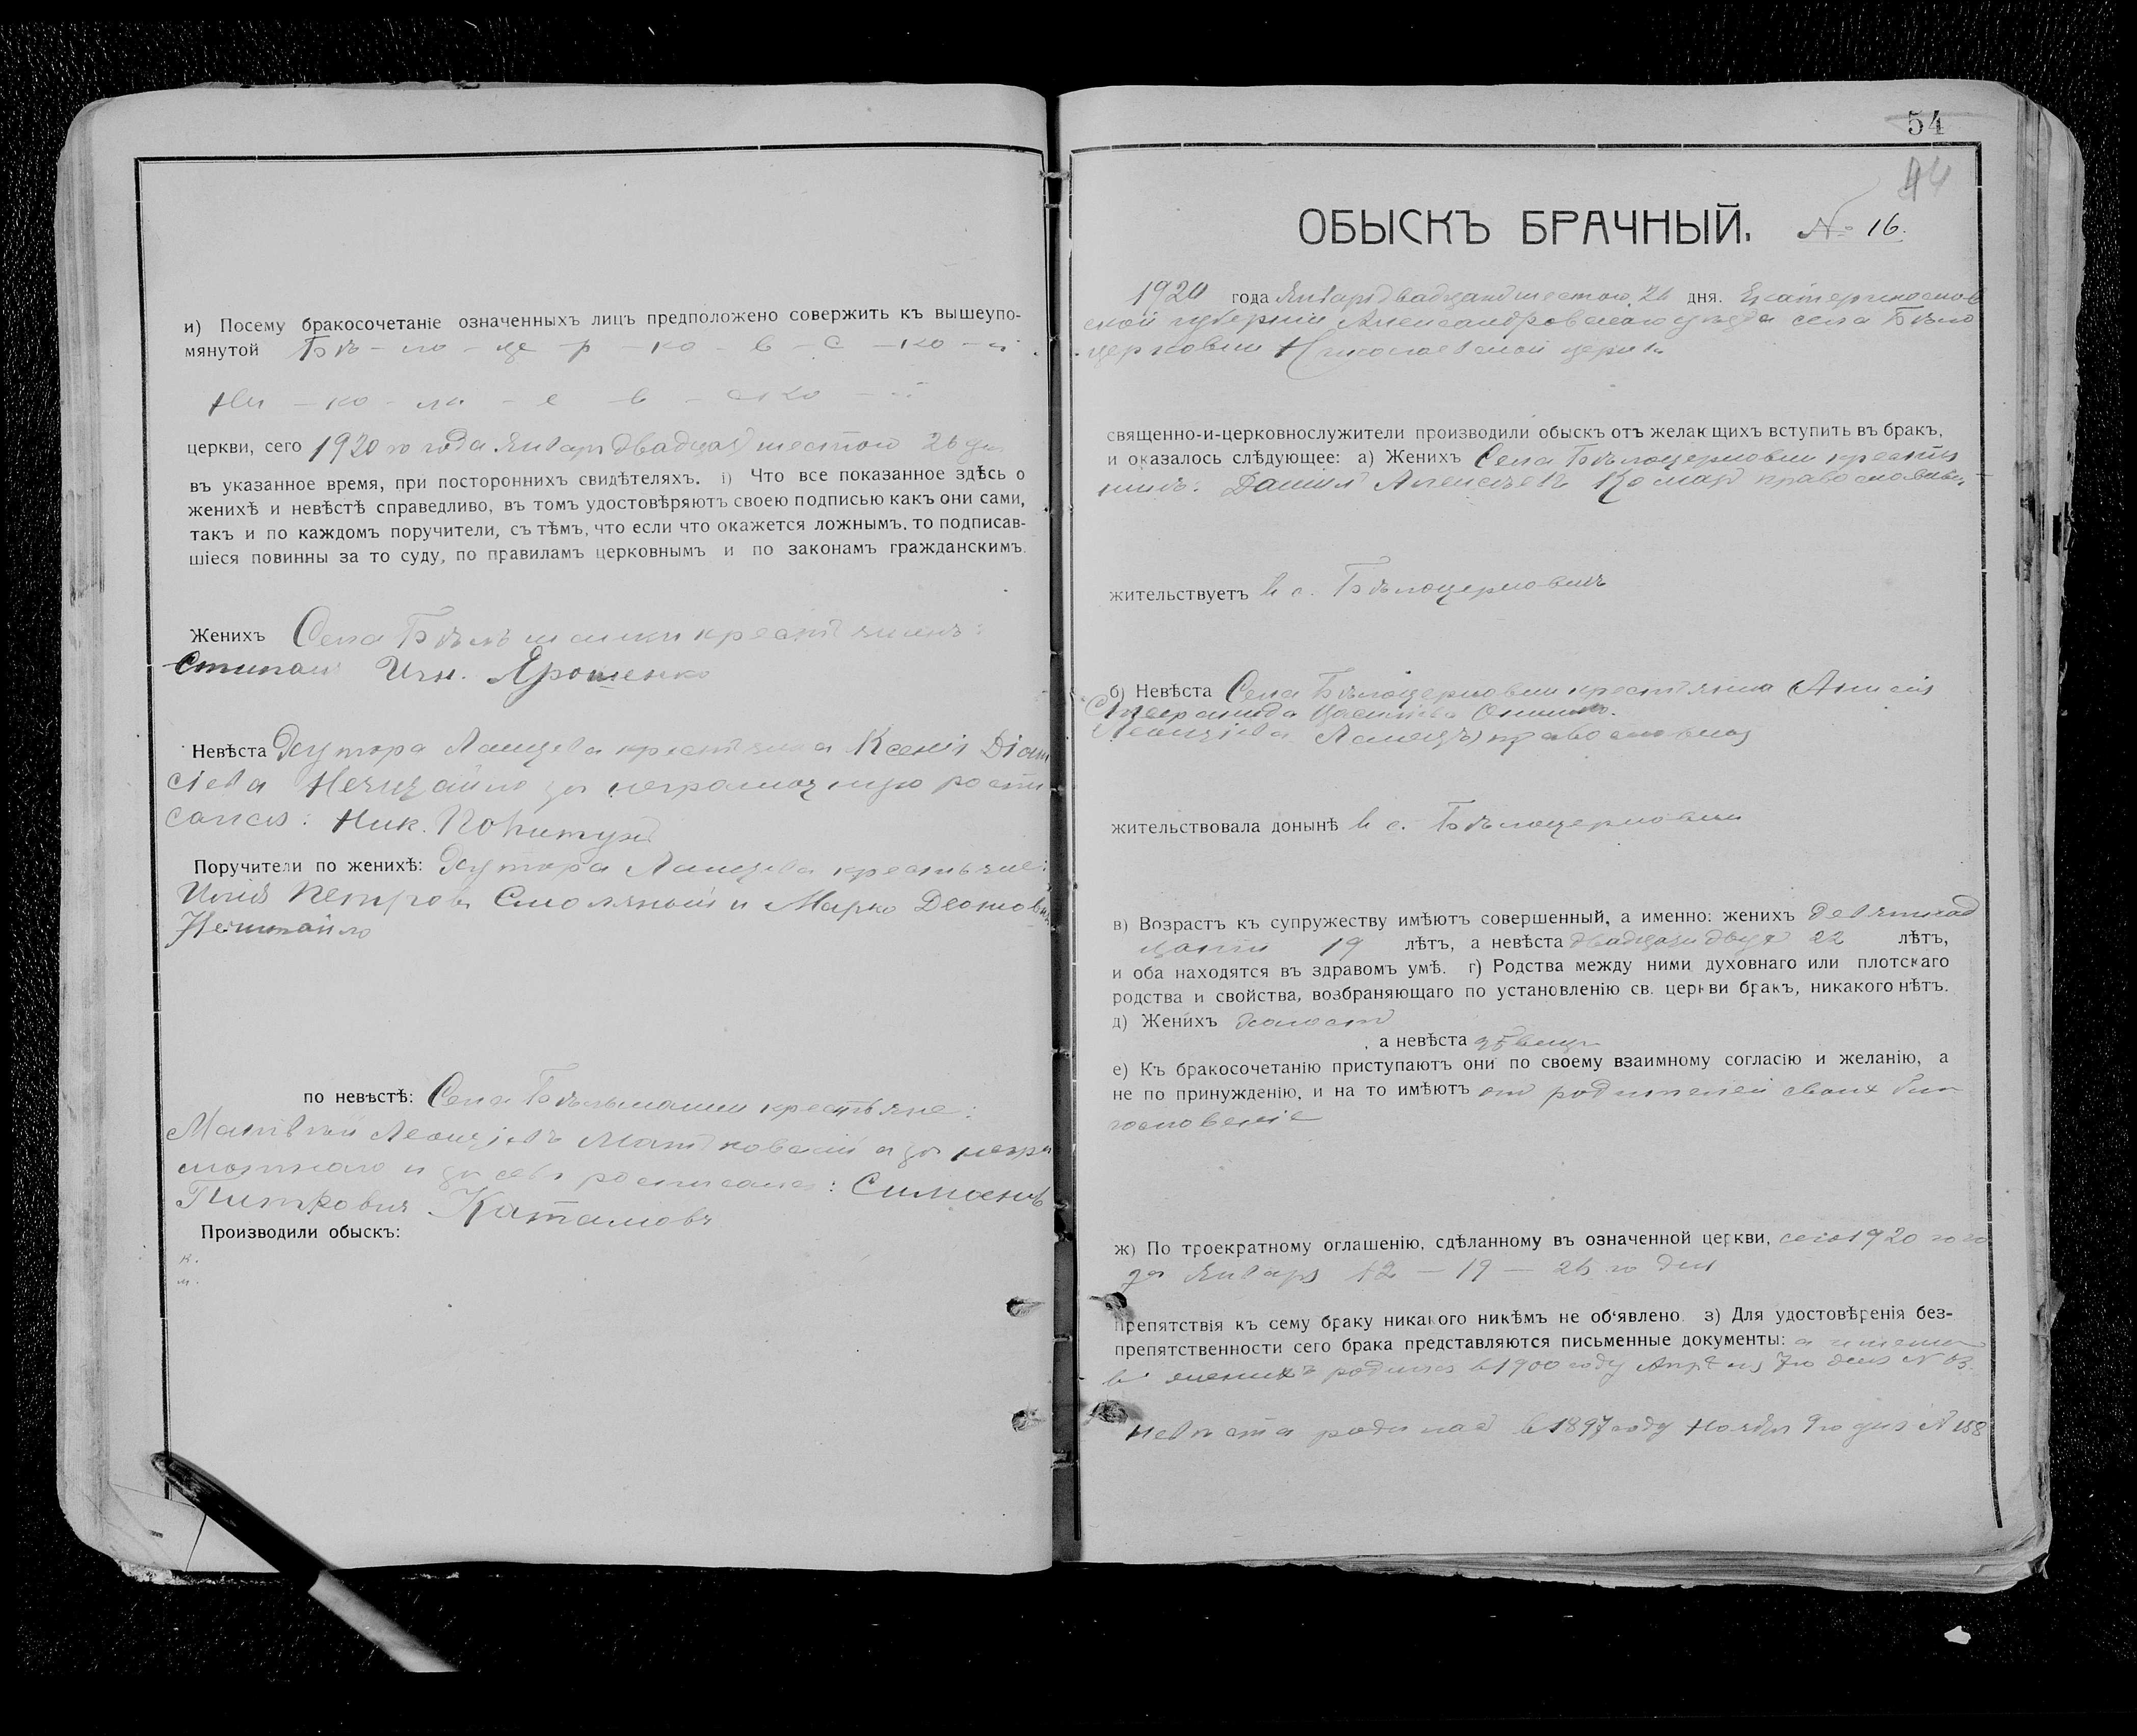 и) Посему бракосочетаніе означенныхъ лицъ предположено совержить къ вышеупо-
мянутой Бѣ – ло – це – р – ко – в – с – ко – й
Ни – ко – ла – е – в – ско – й
церкви, сего 1920 го года Январ двадцат шестого 26 дня
въ указанное время, при постороннихъ свидѣтеляхъ. і) Что все показанное здѣсь о
женихѣ и невѣстѣ справедливо, въ томъ удостовѣряютъ своею подписью какъ они сами,
такъ и по каждомъ поручители, съ тѣмъ, что если что окажется ложнымъ, то подписав-
шіеся повинны за то суду, по правиламъ церковнымъ и по законамъ гражданскимъ.
Женихъ Села крестянинъ:
Степан Игн. Ярошенко
Невѣста Хутора крестянка Ксенія
Нечитайло за неграмотную роспи
сался: Ник.
Поручители по женихѣ: Хутора крестьяне:
Илія Петров Смоляный и Марко
Нечитайло
по невѣстѣ: Села крестьяне:
Леонтіевъ а за негра
мотного и за себя росписался: Симіенъ
Питрович
Производили обыскъ:
к.
54
44
ОБЫСКЪ БРАЧНЫЙ. № 16.
1920 года Января двадцат шестого 26 дня. Екатеринослав
ской губерніи Александровского уѣзда села Бѣло
церковки Николаевской церкви
священно-и-церковнослужители производили обыскъ отъ желающихъ вступить въ бракъ,
и оказалось слѣдующее: а) Женихъ Села Бѣлоцерковки крестя
нинъ: Данил Алексѣевъ Комар православный
жительствуетъ в с. Бѣлоцерковкѣ
б) Невѣста Села Бѣлоцерковки крестянка
Леонтіева православная
жительствовала донынѣ в с. Бѣлоцерковки
в) Возрастъ къ супружеству имѣютъ совершенный, а именно: женихъ девятнад
цати 19 лѣтъ, а невѣста двадцати двух 22 лѣтъ,
и оба находятся въ здравомъ умѣ. г) Родства между ними духовнаго или плотскаго
родства и свойства, возбраняющаго по установленію св. церкви бракъ, никакого нѣтъ.
д) Женихъ холост
а невѣста дѣвица
е) Къ бракосочетанію приступаютъ они по своему взаимному согласію и желанію, а
не по принужденію, и на то имѣютъ от родителей своих бла
гословеніе
ж) По троекратному оглашенію, сдѣланному въ означенной церкви, сего 1920 го го
да Январ 12 – 19 – 26 го дня
препятствія къ сему браку никакого никѣмъ не об'явлено. з) Для удостовѣренія без-
препятственности сего брака представляются письменные документы: а именно
женихъ родился в 1900 году Апрѣля 7го дня № 63.
невѣста родилас в 1897 году Ноября 9го дня № 158